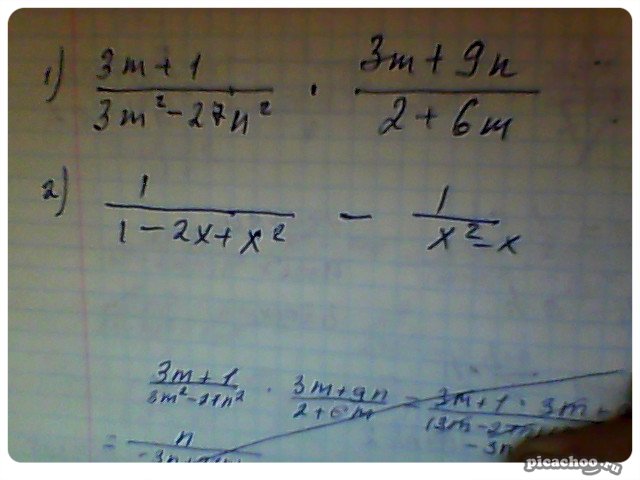 1) (3m + 1)/(3m² - 27n²) · (3m + 9n)/(2 + 6m)
2) 1/(1 - 2x + x²) - 1/(x² - x)
(3m + 1)/(3m² - 27n²) · (3m + 9n)/(2 + 6m) = 3m + 1 · 3m +
= n
picachoo.ru